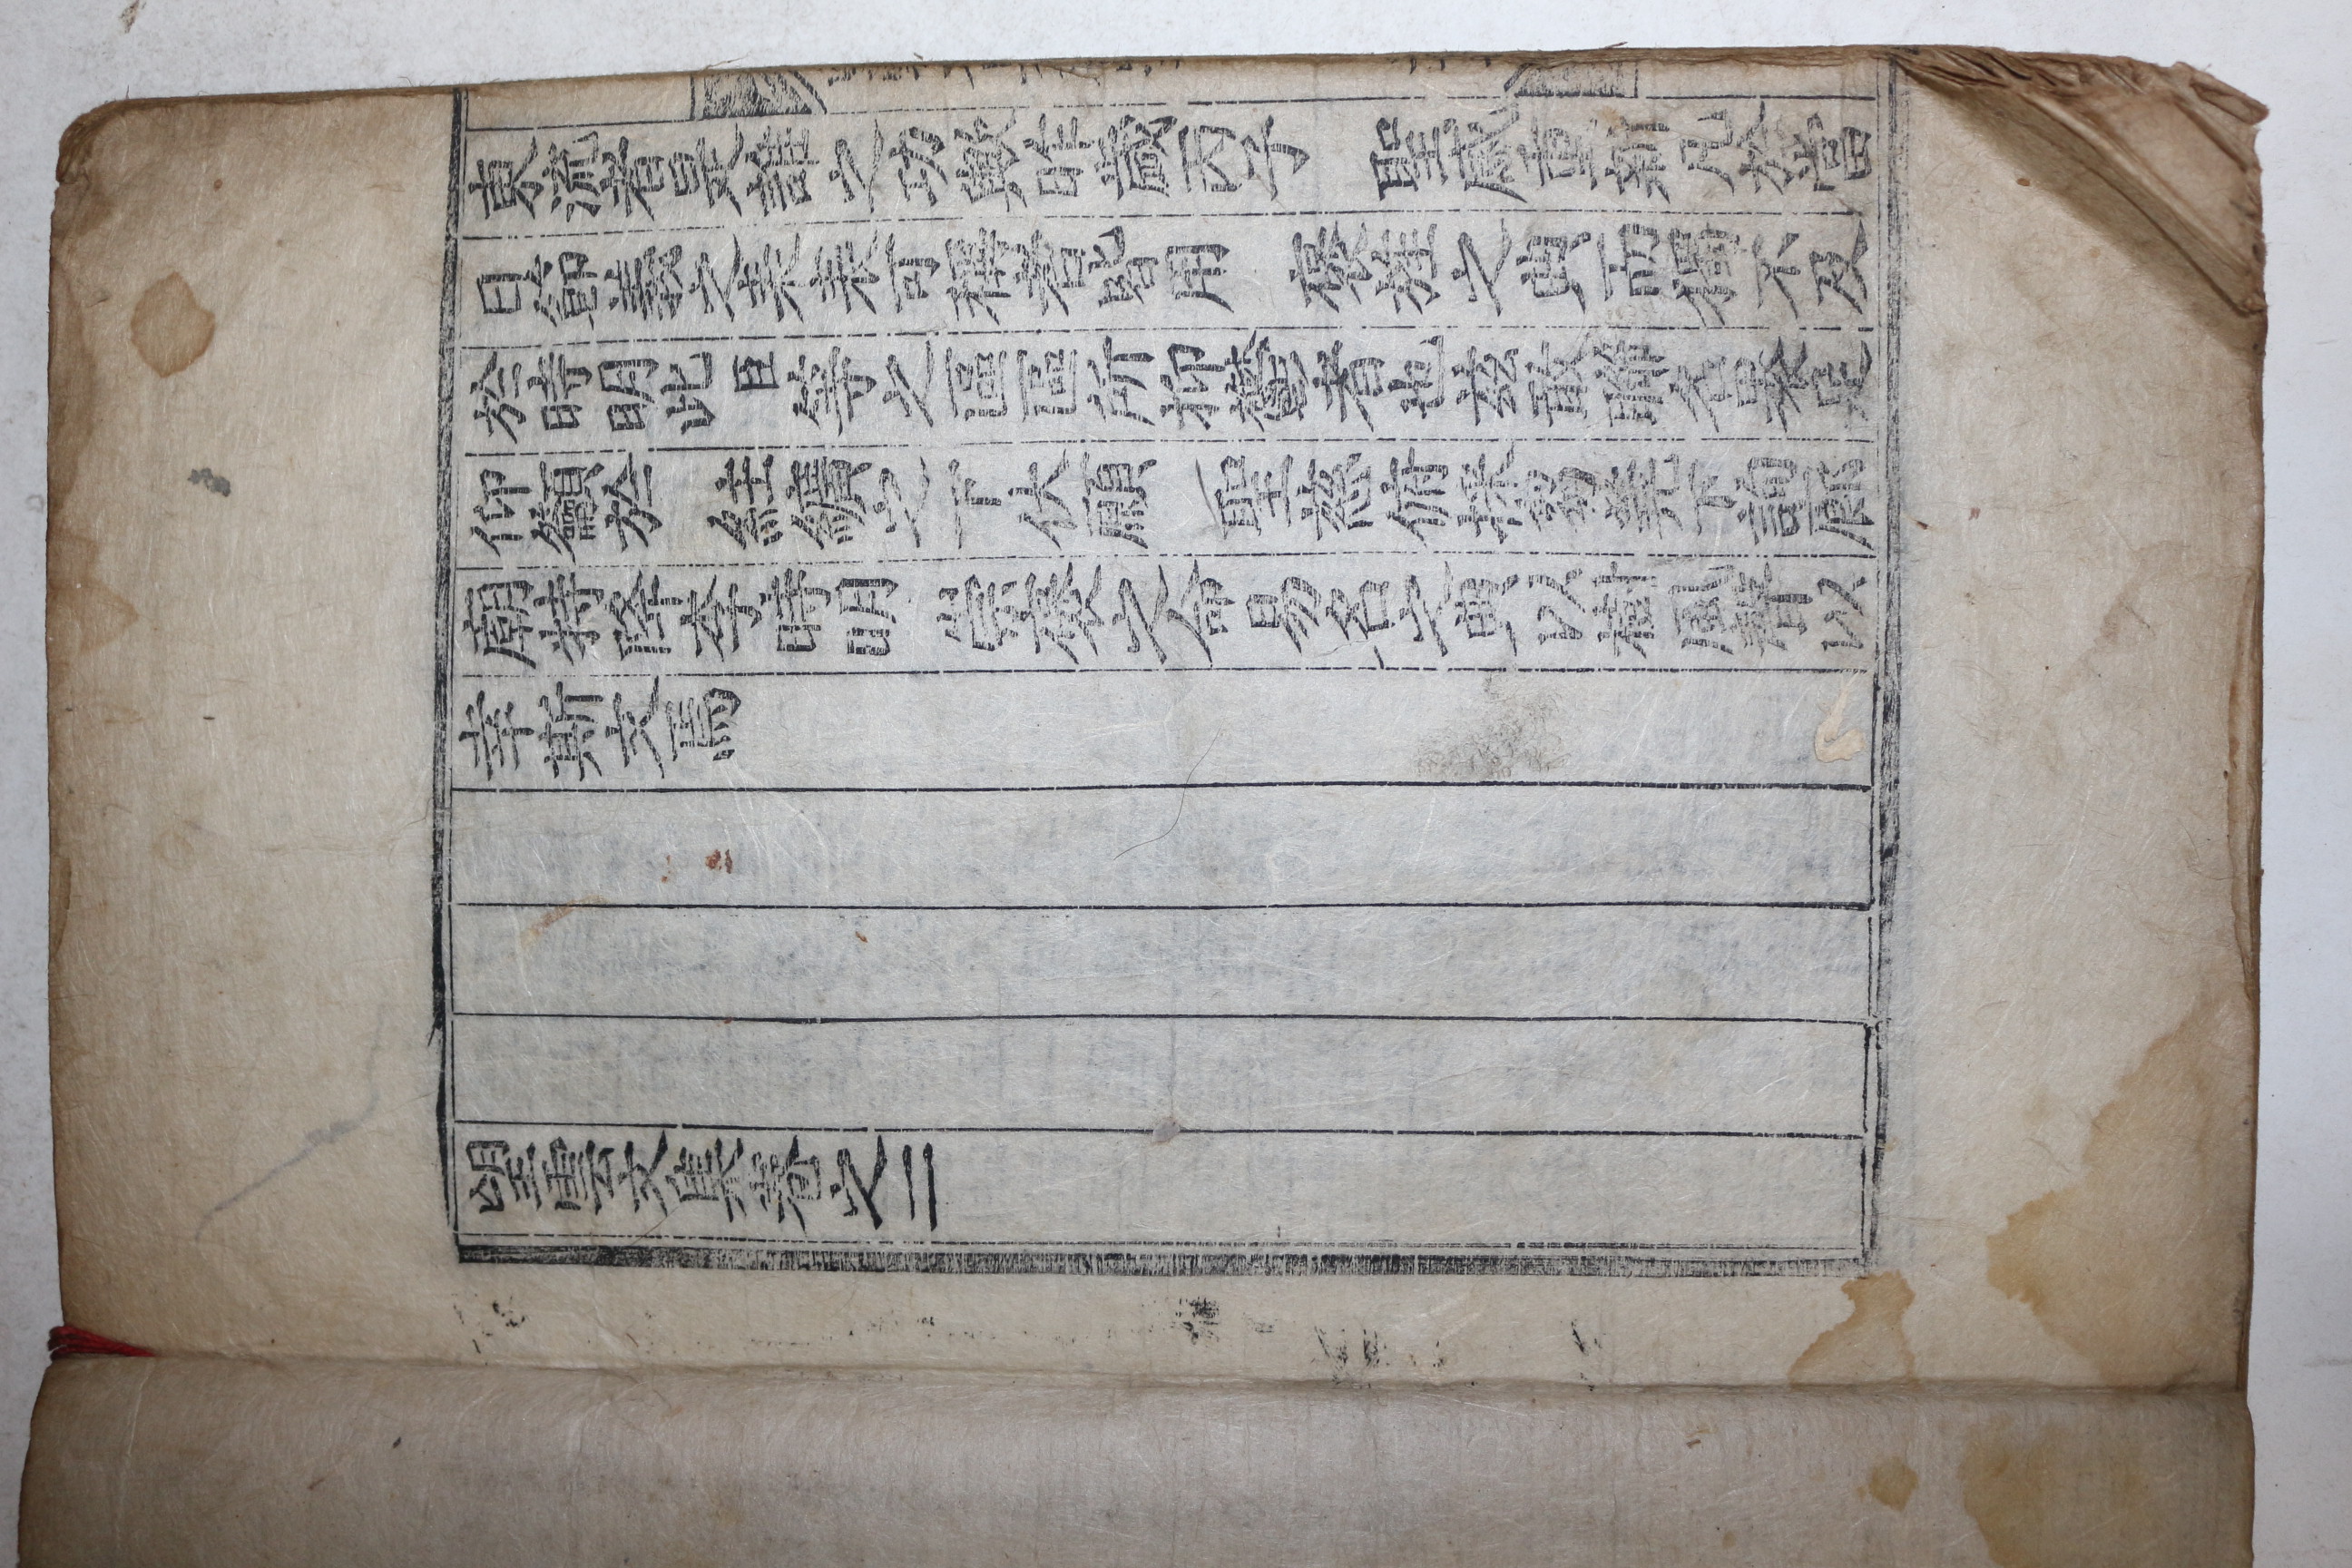 東流者是誰之功歟昨歲丙子　聖感重新凡於當
日節義之表表可稱者皆用　褒旌之典而獨不及
於時明此臣等之區區所抑鬱者也玆敢聯名裹足
仰籲於　絓纊之下伏願　聖慈俯採芻蕘下詢廊
廟特降李時明　崇褒之命易名之典以樹風聲以
幸斯文焉
望雲文集卷之二